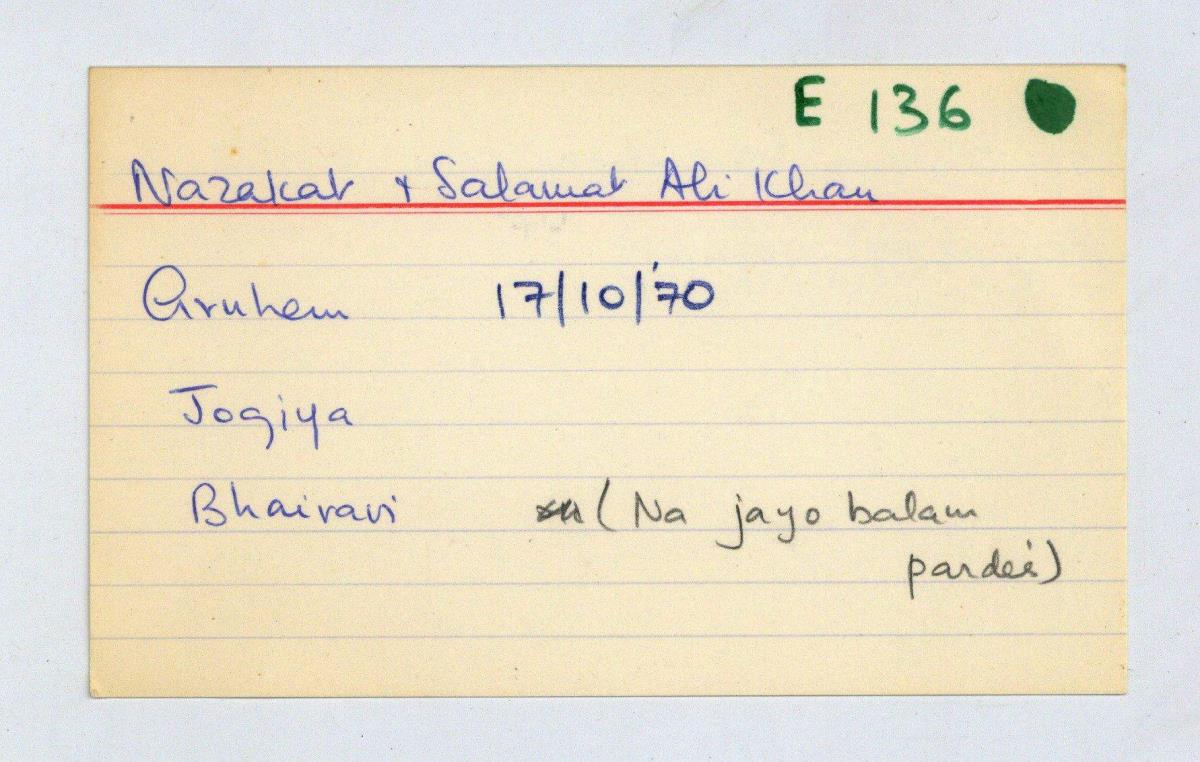 E 136
Nazakat + Salamat Ali Khan
Arnhem 17/10/'70
Jogiya
Bhairavi (Na jayo balam
pardes)